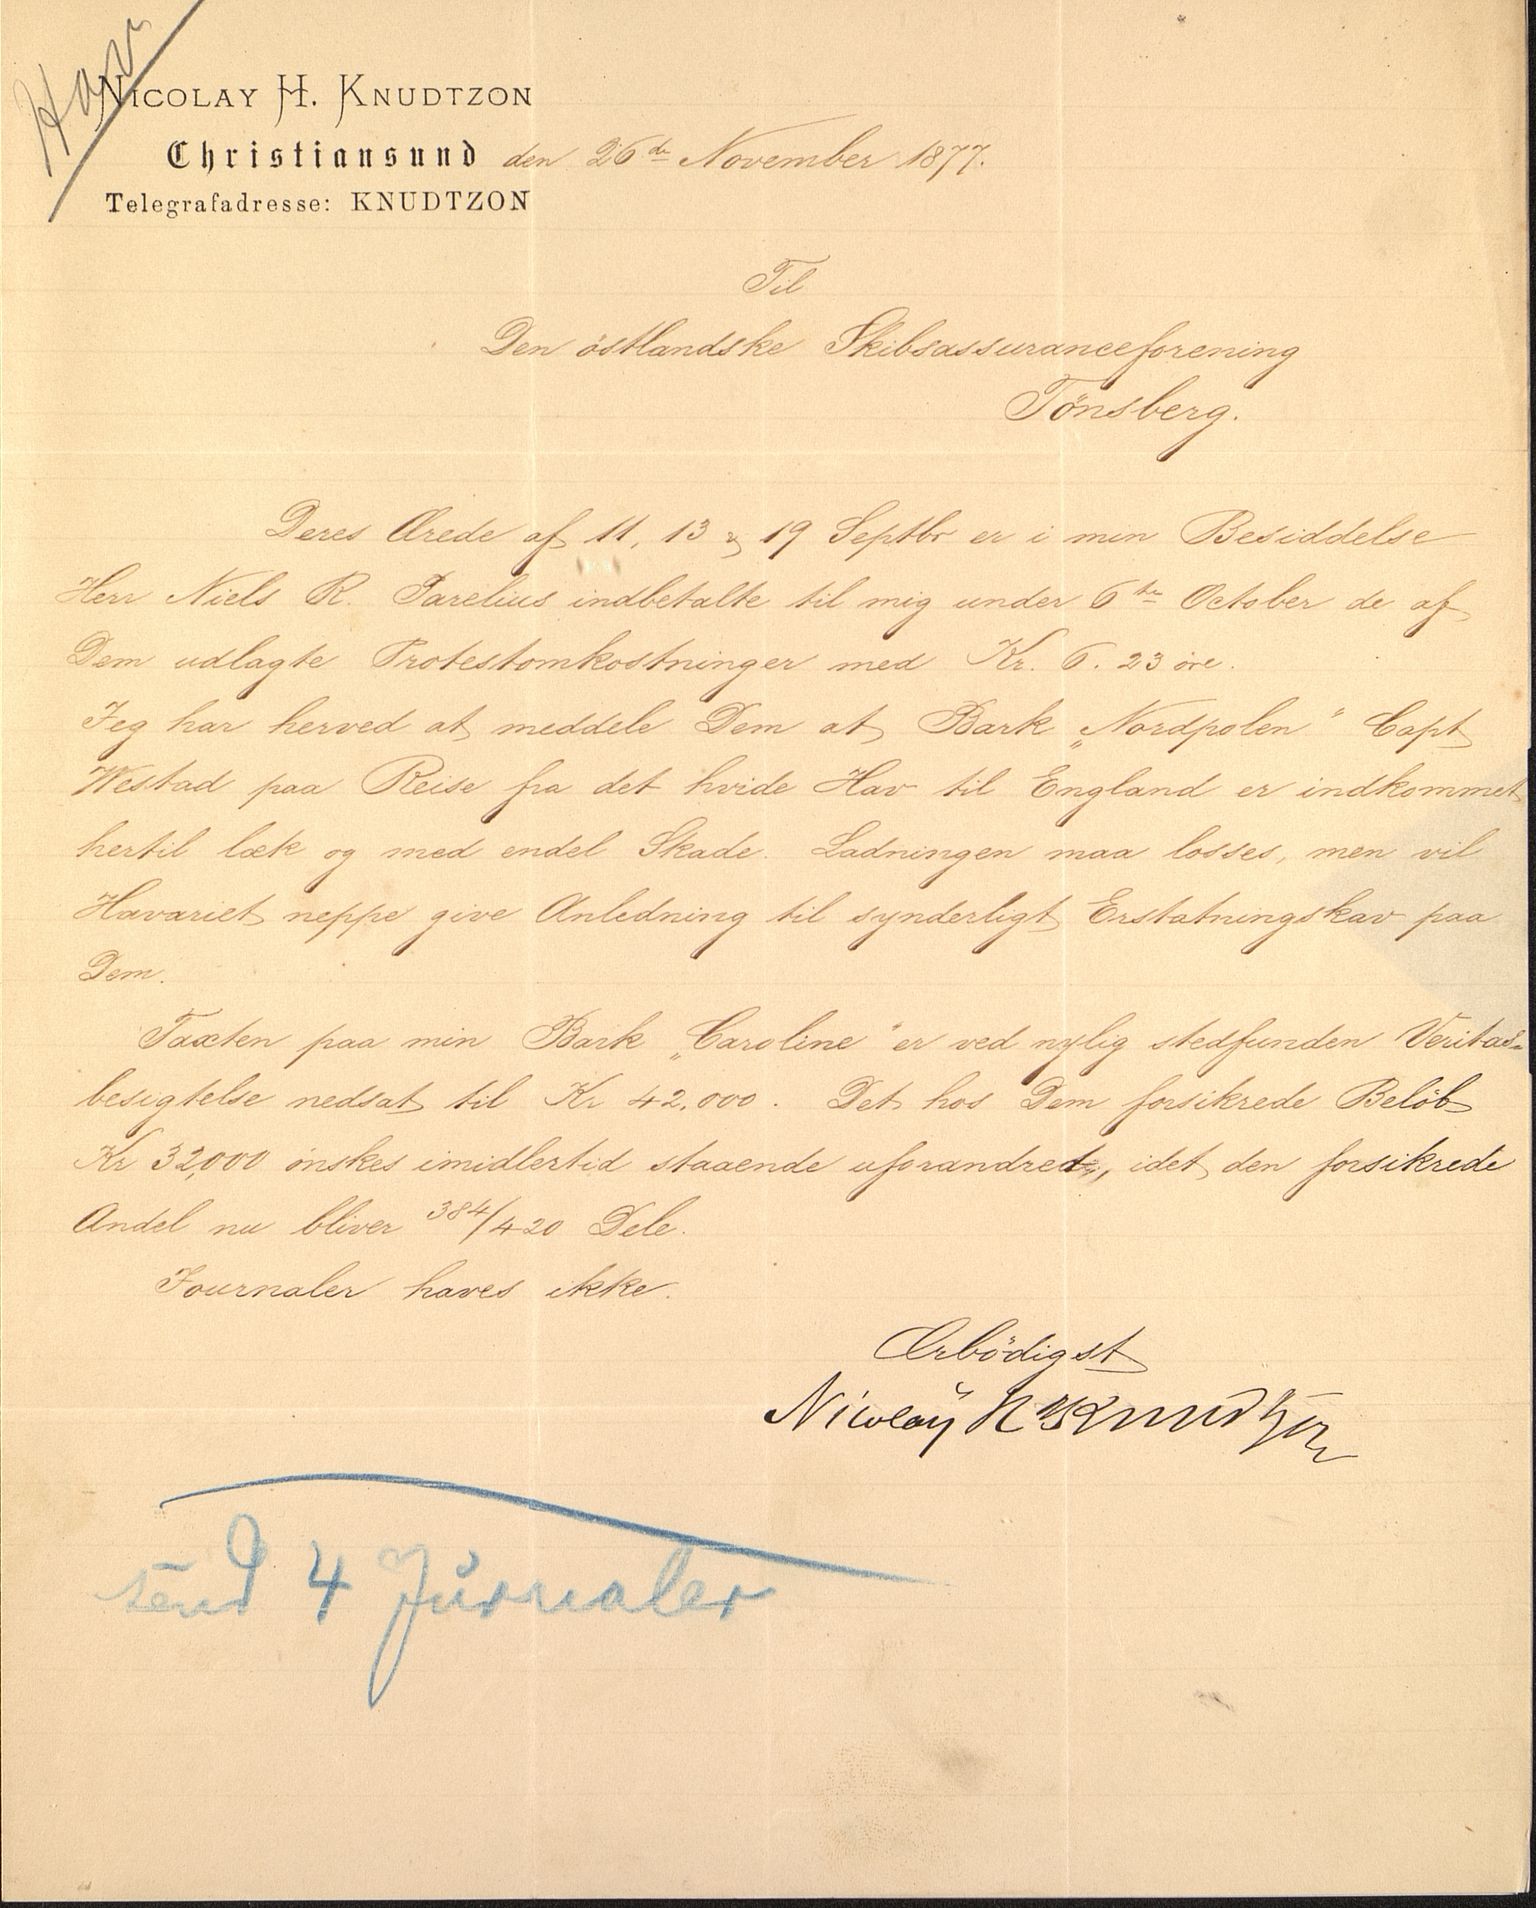 Hav
NICOLAY H. KNUDTZON
Christiansund den 26de November 1877.
Telegrafadresse: KNUDTZON
Til
Den östlandske Skibsassuranceforening
Tönsberg.
Deres Ærede af 11, 13 & 19 Septbr er i min Besiddelse
Herr Niels R. Parelius indbetalte til mig under 6te October de af
Dem udlagte Protestomkostninger med Kr. 6. 23 öre.
Jeg har herved at meddele Dem at Bark „Nordpolen" Capt
Westad paa Reise fra det hvide Hav til England er indkommet
hertil læk og med endel Skade. Ladningen maa losses, men vil
Havariet neppe give Anledning til synderligt Erstatningskav paa
Dem.
Taxten paa min Bark „Caroline" er ved nylig stedfunden Veritas-
besigtelse nedsat til Kr 42,000. Det hos Dem forsikrede Belöb
Kr 32,000 önskes imidlertid staaende uforandret, idet den forsikrede
Andel nu bliver 384/420 Dele.
Journaler haves ikke.
Ærbödigst
Nicolay H Knudtzon
send 4 Jurnaler